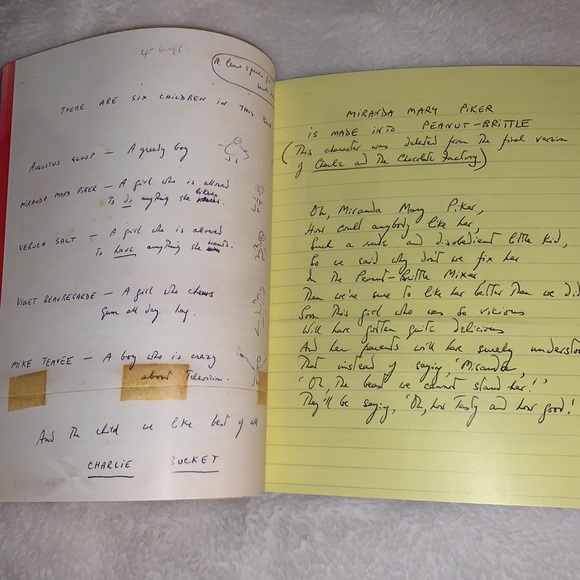 THERE ARE SIX CHILDREN IN THIS
AUGUSTUS GLOOP — A greedy boy
MIRANDA MARY PIKER — A girl who is allowed
to do anything she likes.
VERUCA SALT — A girl who is allowed
To have anything she wants.
VIOLET BEAUREGARDE — A girl who chews
gum all day long.
MIKE TEAVEE — A boy who is crazy
about Television.
And the child we like best of all
CHARLIE BUCKET
MIRANDA MARY PIKER
IS MADE INTO PEANUT-BRITTLE
(This character was deleted from the final version
of Charlie and The Chocolate Factory)
Oh, Miranda Mary Piker,
How could anybody like her,
Such a rude and disobedient little kid,
So we said why don't we fix her
In the Peanut-Brittle Mixer
Then we're sure to like her better than we did
Soon this girl who was so vicious
Will have gotten quite delicious
And her parents will have surely
That instead of saying, 'Miranda,
'Oh, the beast we cannot stand her!'
They'll be saying, 'Oh, how Tasty and how good!